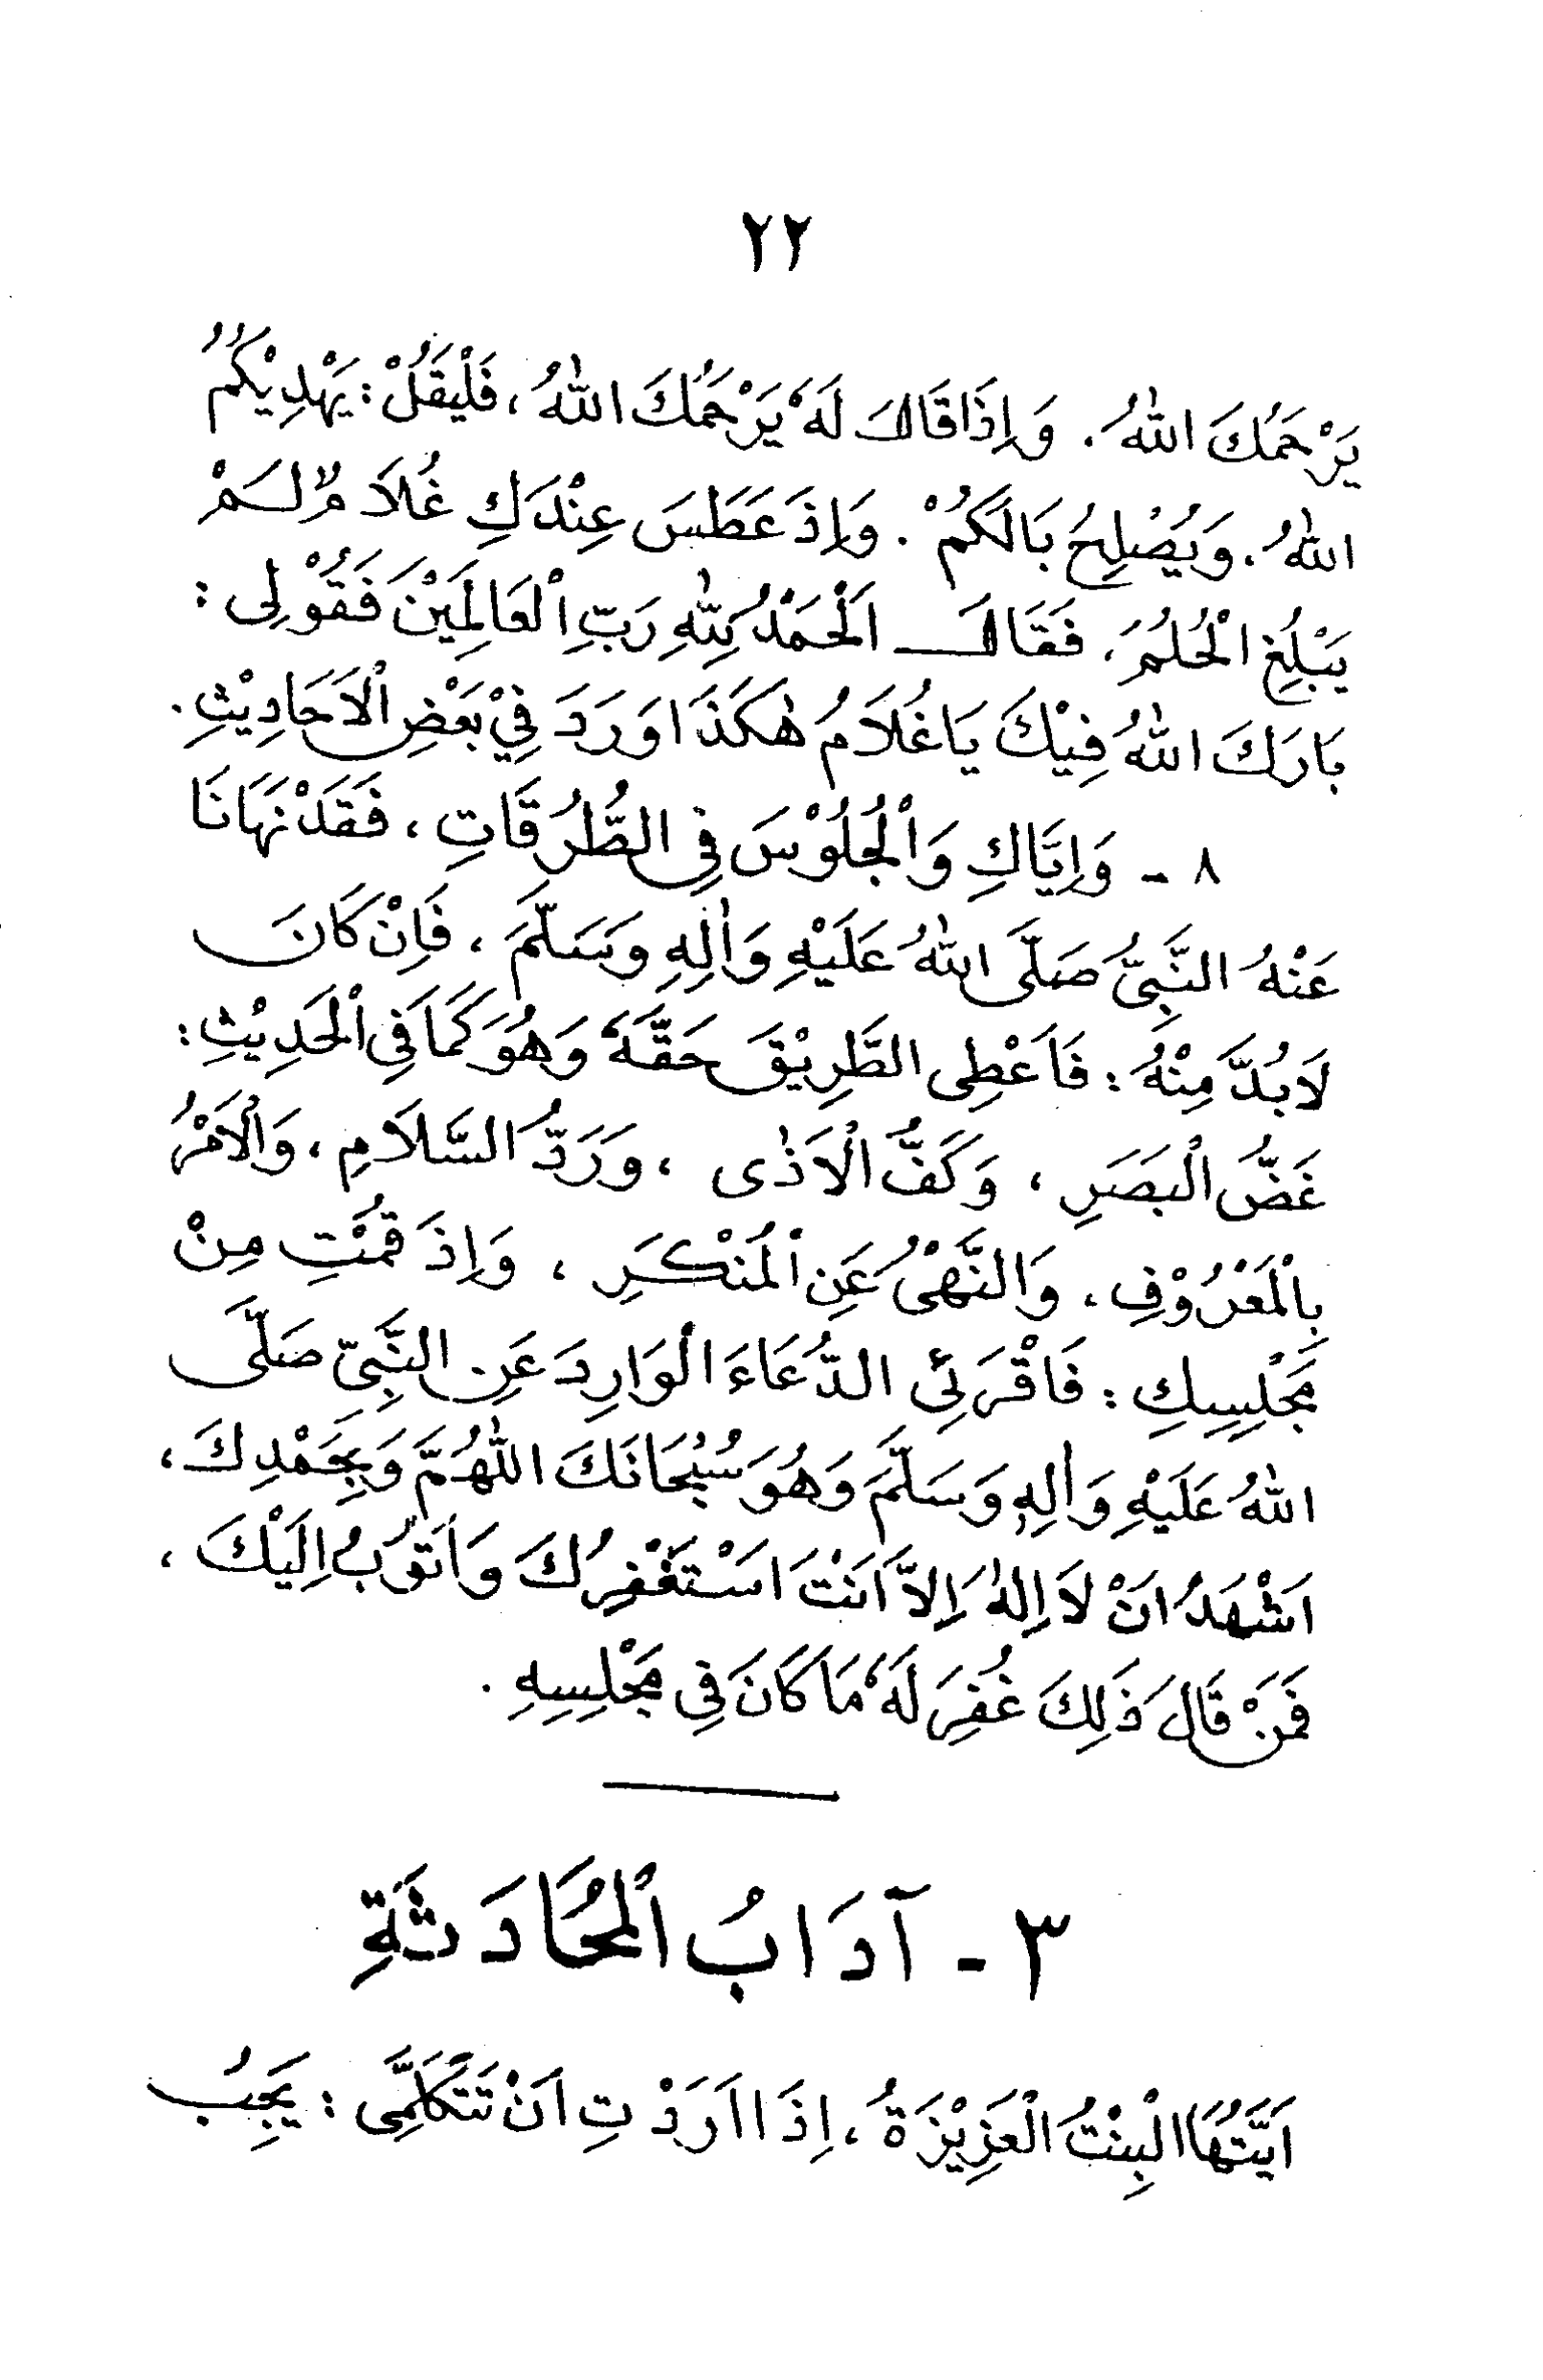 ٢٢
يَرْحَمُكَ اللهُ. وَاِذَا قَالَ لَهُ يَرْحَمُكَ اللهُ، فَلْيَقُلْ: يَهْدِيْكُمُ
اللهُ. وَيُصْلِحُ بَالَكُمْ. وَاِذَ عَطَسَ عِنْدَكِ غُلَامٌ لَمْ
يَبْلُغِ الْحُلُمَ، فَقَالَ اَلْحَمْدُ لِلّٰهِ رَبِّ الْعَالَمِيْنَ فَقُوْلِى:
بَارَكَ اللهُ فِيْكَ يَاغُلَامُ هٰكَذَا وَرَدَ فِيْ بَعْضِ الْاَحَادِيْثِ.
٨ - وَاِيَّاكِ وَالْجُلُوْسَ فِى الطُّرُقَاتِ، فَقَدْ نَهَانَا
عَنْهُ النَّبِيُّ صَلَّى اللهُ عَلَيْهِ وَاٰلِهِ وَسَلَّمَ، فَاِنْ كَانَ
لَابُدَّ مِنْهُ: فَاَعْطِى الطَّرِيْقَ حَقَّهُ وَهُوَ كَمَا فِى الْحَدِيْثِ:
غَضُّ الْبَصَرِ، وَكَفُّ الْاَذٰى، وَرَدُّ السَّلَامِ، وَالْاَمْرُ
بِالْمَعْرُوْفِ، وَالنَّهْىُ عَنِ الْمُنْكَرِ، وَاِذَ قُمْتِ مِنْ
مَجْلِسِكِ: فَاقْرَئِى الدُّعَاءَ الْوَارِدَ عَنِ النَّبِيِّ صَلَّى
اللهُ عَلَيْهِ وَاٰلِهِ وَسَلَّمَ وَهُوَ سُبْحَانَكَ اللّٰهُمَّ وَبِحَمْدِكَ،
اَشْهَدُ اَنْ لَا اِلٰهَ اِلَّا اَنْتَ اَسْتَغْفِرُكَ وَاَتُوْبُ اِلَيْكَ،
فَمَنْ قَالَ ذَلِكَ غُفِرَ لَهُ مَا كَانَ فِى مَجْلِسِهِ.
٣ - آدَابُ الْمُحَادَثَةِ
اَيَّتُهَا الْبِنْتُ الْعَزِيْزَةُ، اِذَا اَرَدْتِ اَنْ تَتَكَلَّمِى: يَجِبُ